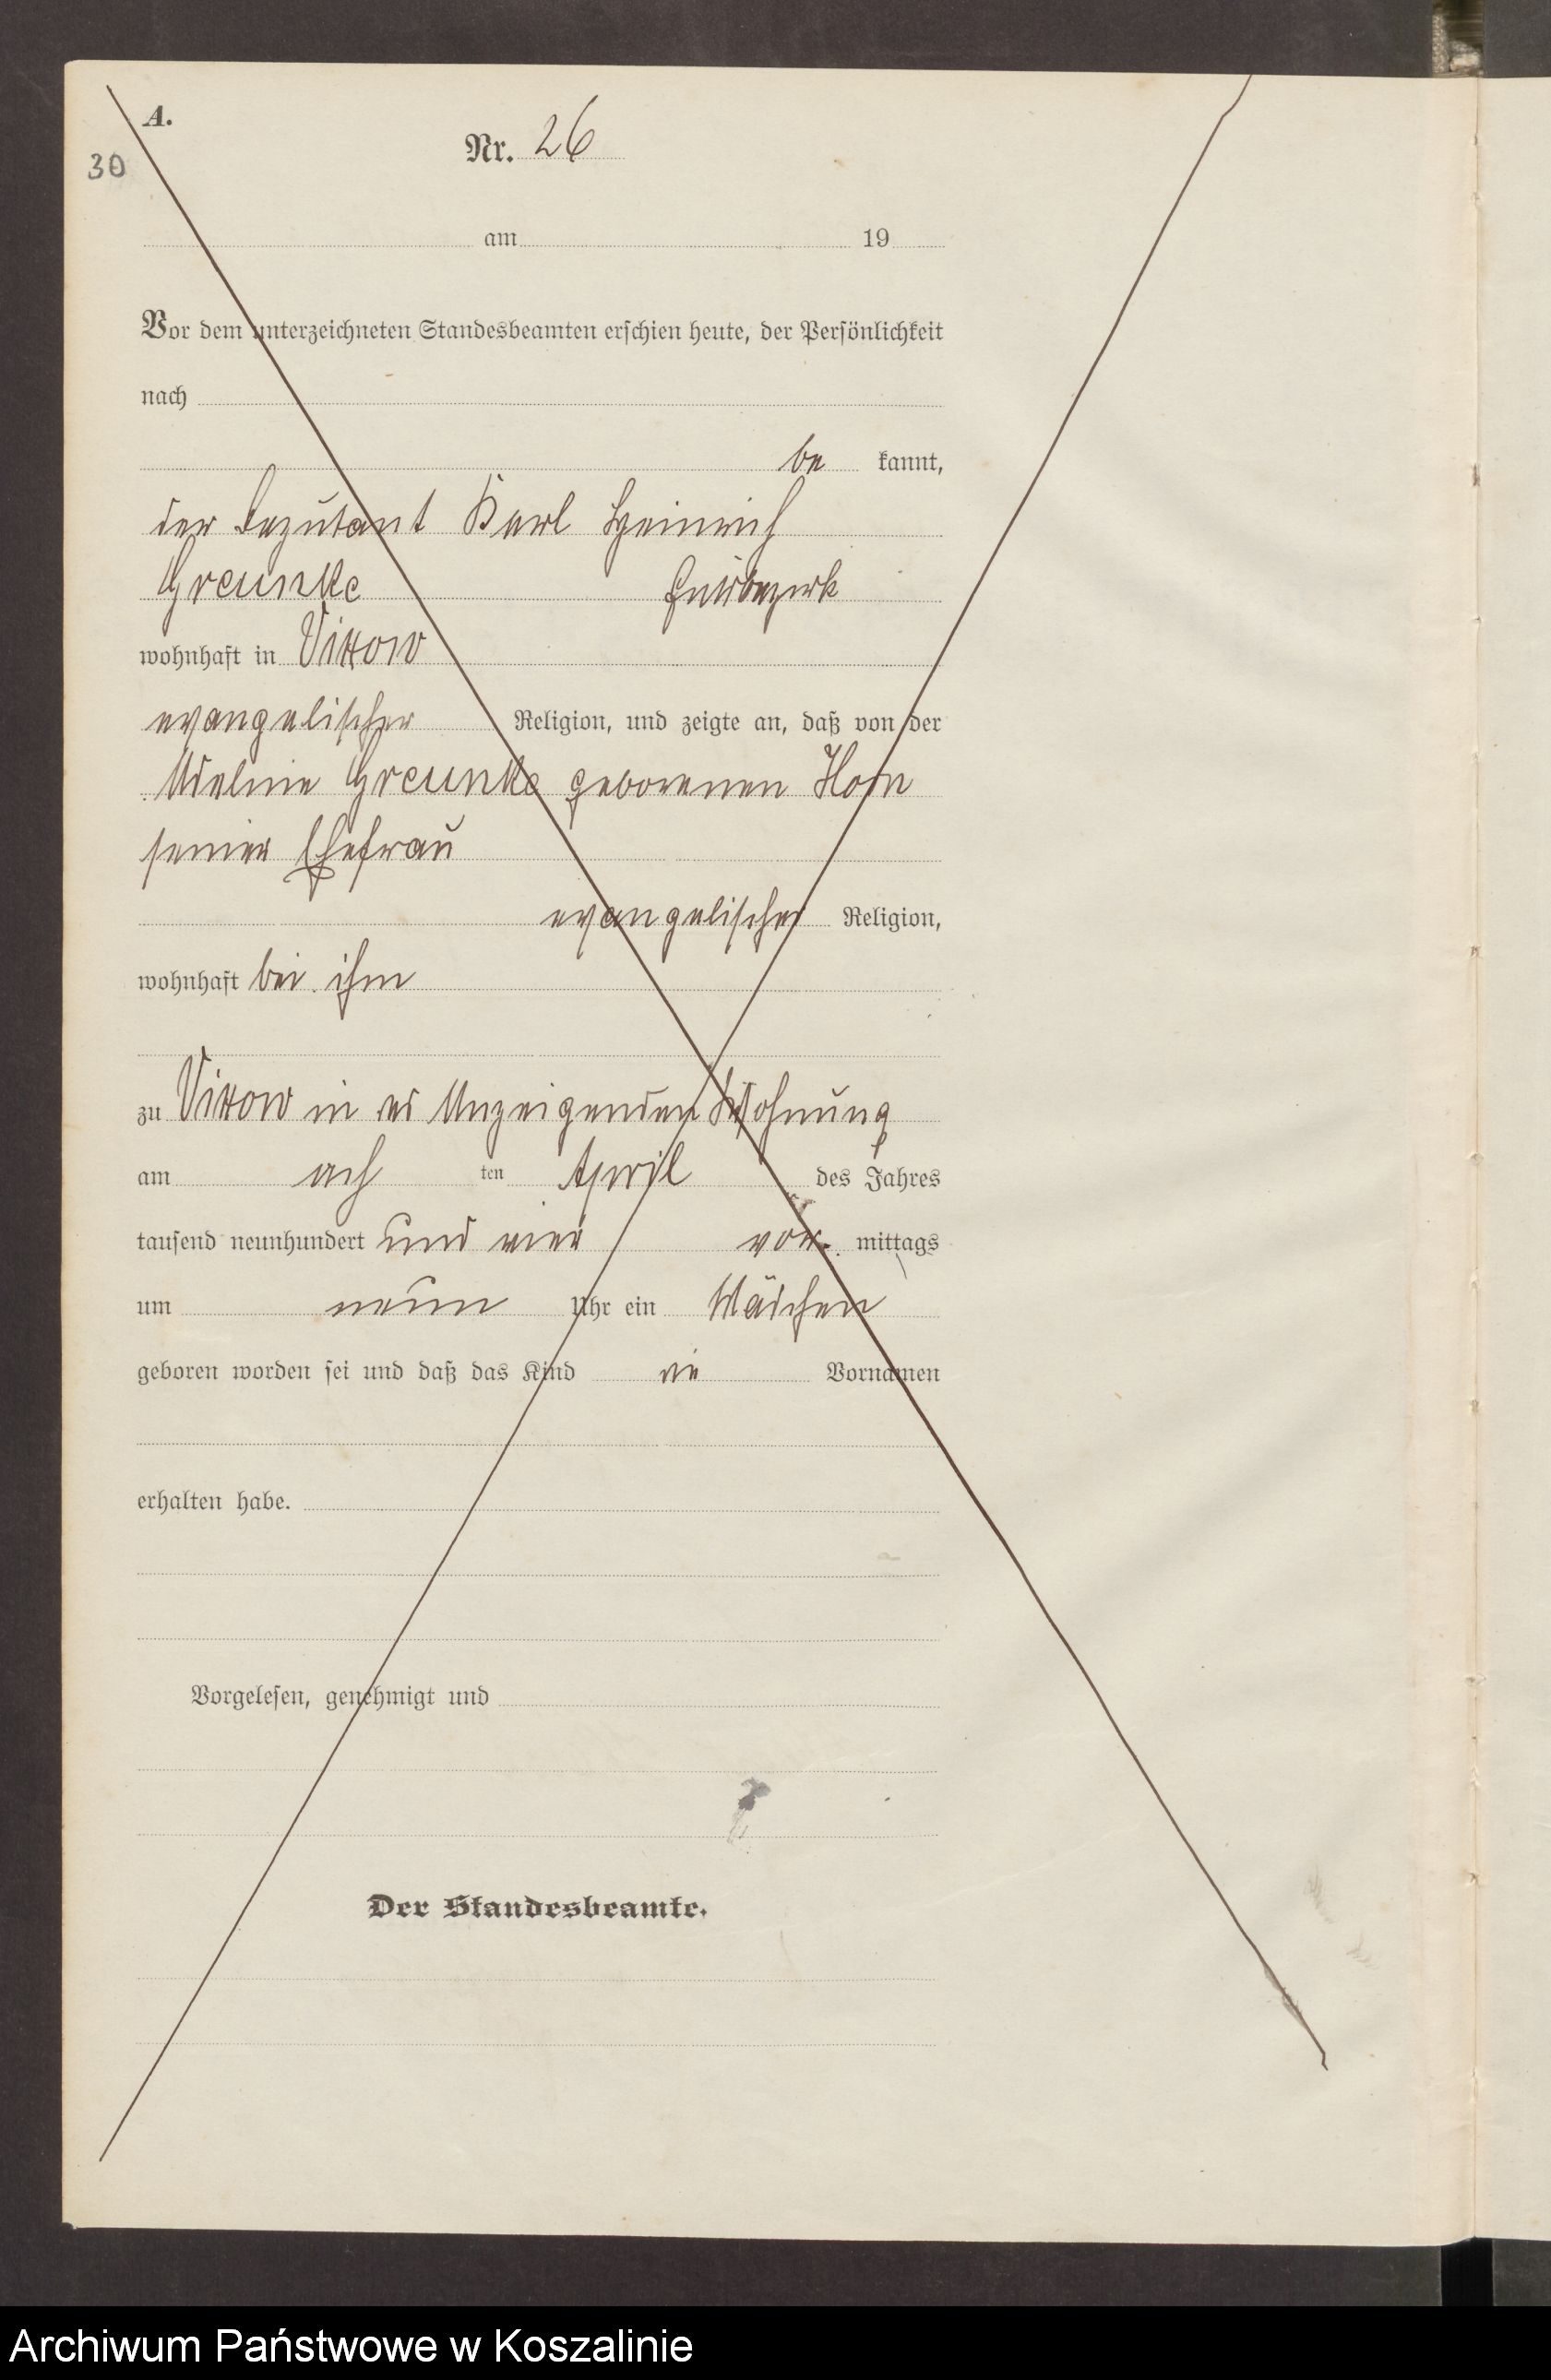 A.
30
Nr. 26
am 19
Vor dem unterzeichneten Standesbeamten erschien heute, der Persönlichkeit
nach
be kannt,
der Karl Heinrich
Greunke Gutsbezirk
wohnhaft in Vittow
evangelischer Religion, und zeigte an, daß von der
Greunke geborenen
seiner Ehefrau
evangelischer Religion,
wohnhaft bei ihm
zu Vittow in des Anzeigenden Wohnung
am ach ten April des Jahres
tausend neunhundert und vier vor mittags
um neun Uhr ein Mädchen
geboren worden sei und daß das Kind die Vornamen
erhalten habe.
Vorgelesen, genehmigt und
Der Standesbeamte.
Archiwum Państwowe w Koszalinie